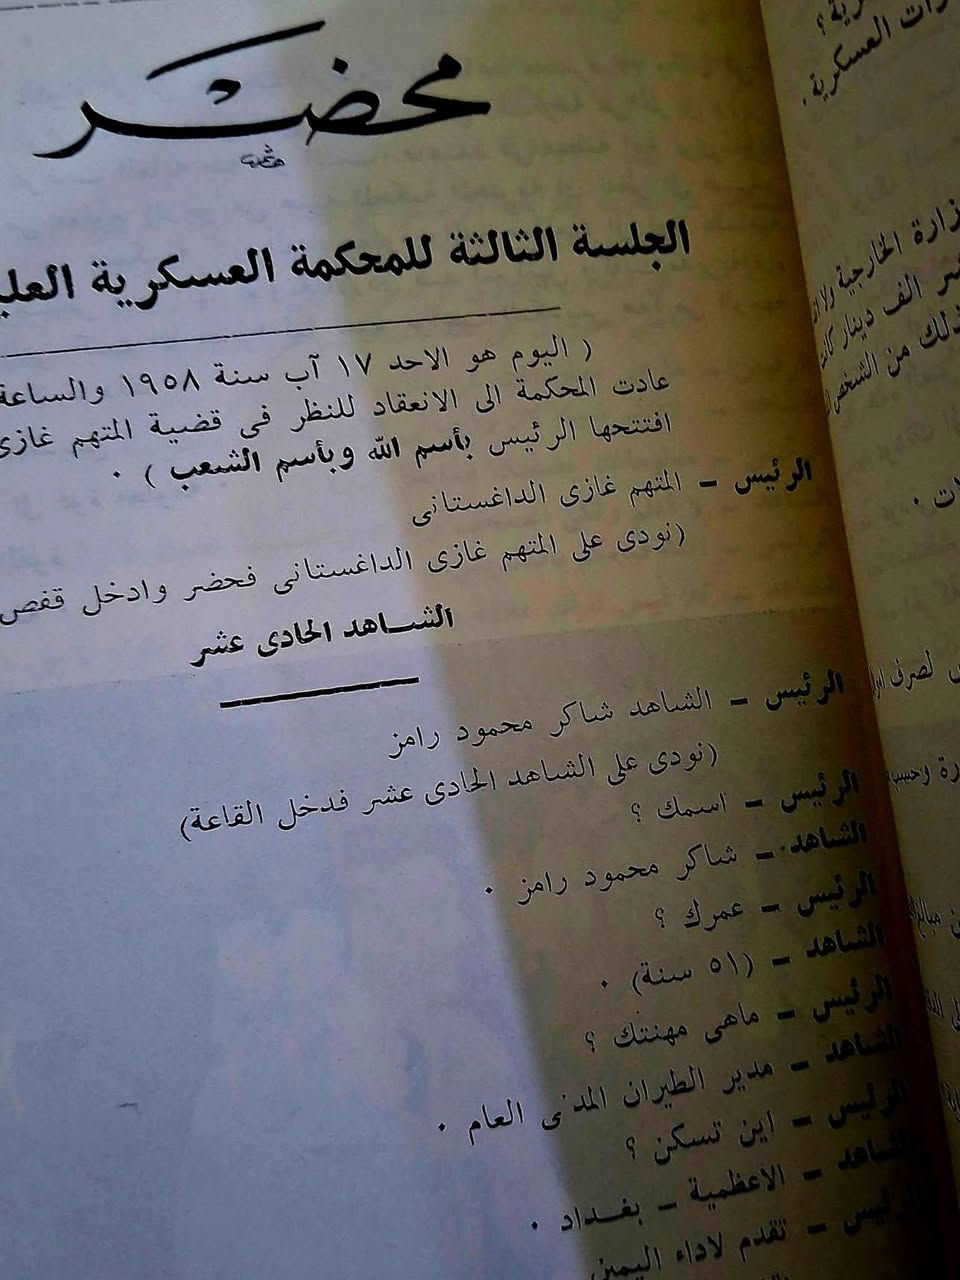 محضر
الجلسة الثالثة للمحكمة العسكرية
( اليوم هو الاحد ١٧ آب سنة ١٩٥٨ والساعة
عادت المحكمة الى الانعقاد للنظر فى قضية المتهم غازى
افتتحها الرئيس بأسم الله وبأسم الشعب ) ٠
الرئيس – المتهم غازى الداغستانى
(نودى على المتهم غازى الداغستانى فحضر وادخل قفص
الشاهد الحادى عشر
الرئيس – الشاهد شاكر محمود رامز
(نودى على الشاهد الحادى عشر فدخل القاعة)
الرئيس – اسمك ؟
الشاهد – شاكر محمود رامز ٠
الرئيس – عمرك ؟
الشاهد – (٥١ سنة) ٠
الرئيس – ماهى مهنتك ؟
الشاهد – مدير الطيران المدنى العام ٠
الرئيس – اين تسكن ؟
الشاهد – الاعظمية – بغداد ٠
الرئيس – تقدم لاداء اليمين
العسكرية ٠
الخارجية
الف دينار
ذلك من الشخص
لصرف